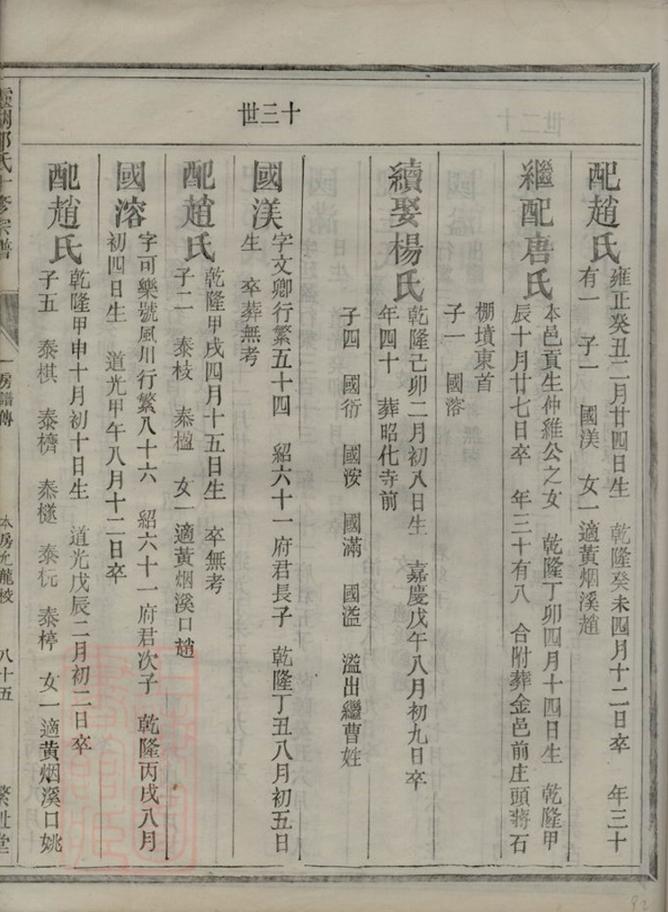 十三世
配趙氏
雍正癸丑二月廿四日生 乾隆癸未四月十二日卒 年三十
有一 子一 國渼 女一適黃烟溪趙
繼配唐氏
本邑貢生仲維公之女 乾隆丁卯四月十四日生 乾隆甲
辰十月廿七日卒 年三十有八 合附葬金邑前庄頭蔣石
棚墳東首
子一 國溶
續娶楊氏
乾隆己卯二月初八日生 嘉慶戊午八月初九日卒
年四十 葬昭化寺前
子四 國衍 國洝 國滿 國溢 溢出繼曹姓
國渼
字文卿行繁五十四 紹六十一府君長子 乾隆丁丑八月初五日
生 卒葬無考
配趙氏
乾隆甲戌四月十五日生 卒無考
子二 泰枝 泰楹 女一適黃烟溪口趙
國溶
字可樂號風川行繁八十六 紹六十一府君次子 乾隆丙戌八月
初四日生 道光甲午八月十二日卒
配趙氏
乾隆甲申十月初十日生 道光戊辰二月初二日卒
子五 泰棋 泰櫅 泰檖 泰杬 泰楟 女一適黃烟溪口姚
氏十修宗譜
一房譜傳
本房允龍校
八十五
繁祉堂